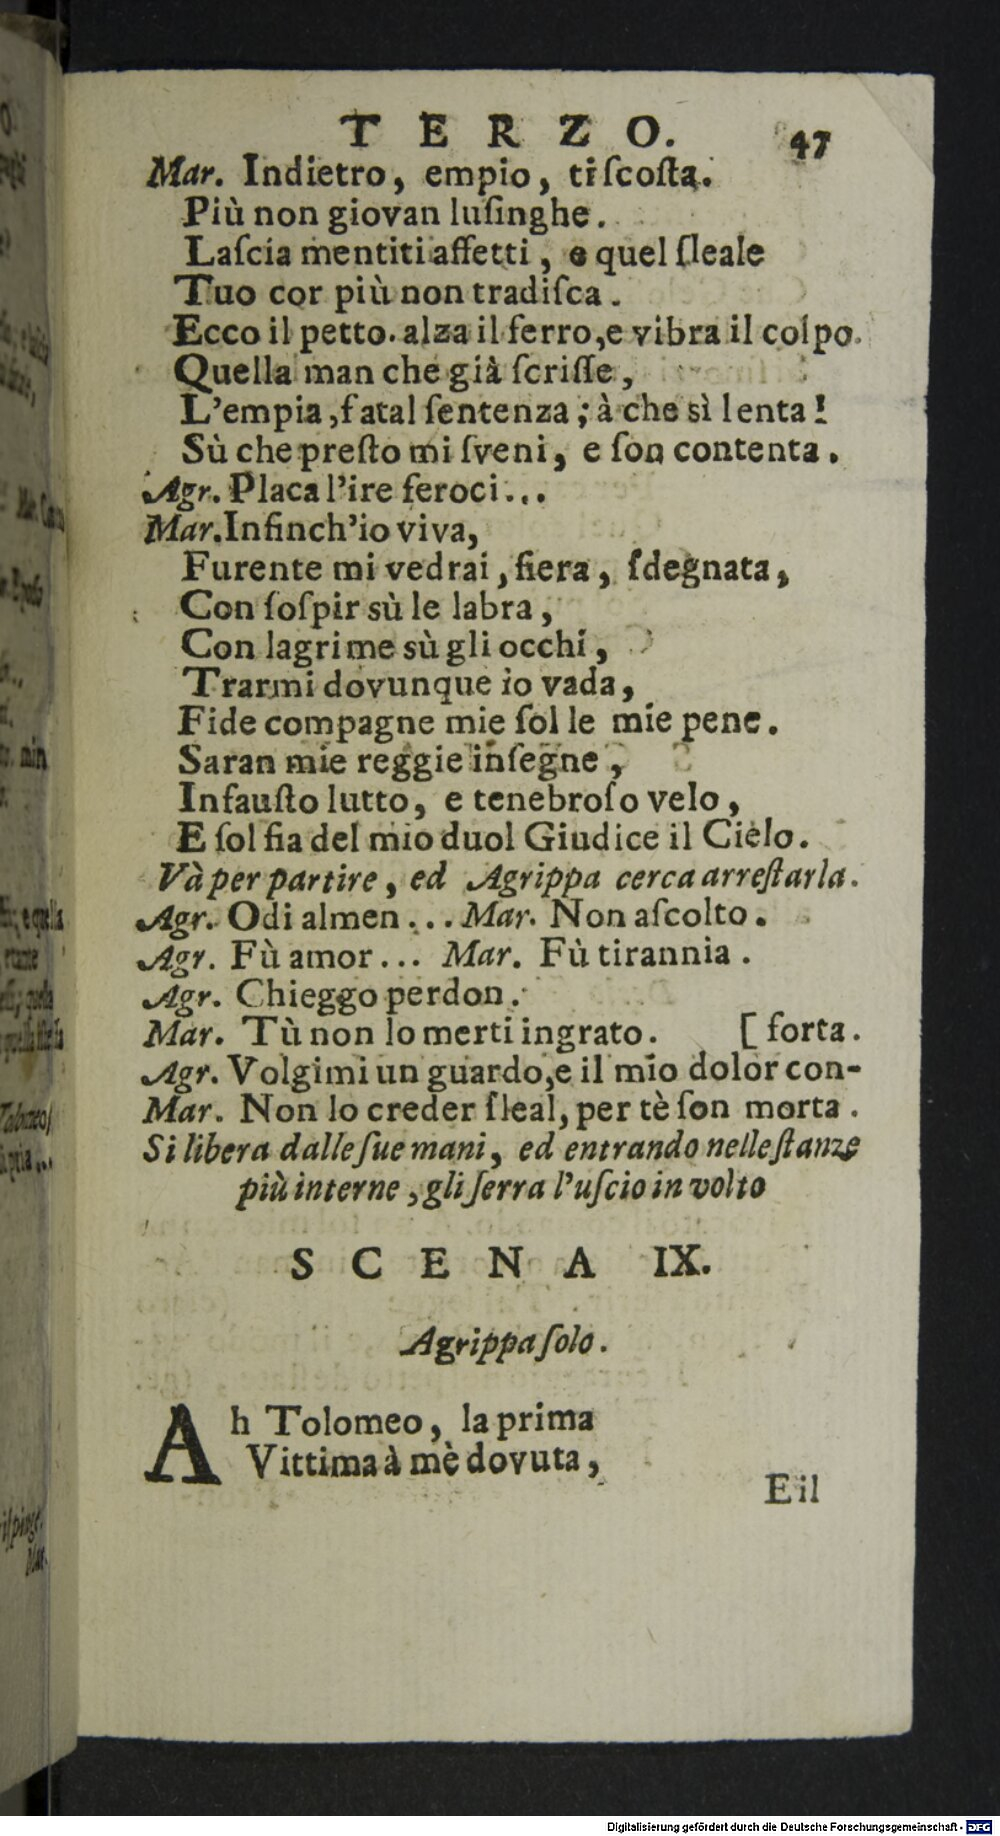 TERZO. 47
Mar. Indietro, empio, ti ſcoſta.
Più non giovan luſinghe.
Laſcia mentiti affetti, e quel ſleale
Tuo cor più non tradiſca.
Ecco il petto. alza il ferro, e vibra il colpo.
Quella man che già ſcriſſe,
L'empia, fatal ſentenza; à che sì lenta!
Sù che preſto mi ſveni, e ſon contenta.
Agr. Placa l'ire feroci...
Mar. Infinch'io viva,
Furente mi vedrai, fiera, ſdegnata,
Con ſoſpir sù le labra,
Con lagrime sù gli occhi,
Trarmi dovunque io vada,
Fide compagne mie ſol le mie pene.
Saran mie reggie inſegne,
Infauſto lutto, e tenebroſo velo,
E ſol fia del mio duol Giudice il Cielo.
Và per partire, ed Agrippa cerca arreſtarla.
Agr. Odi almen... Mar. Non aſcolto.
Agr. Fù amor... Mar. Fù tirannia.
Agr. Chieggo perdon.
Mar. Tù non lo merti ingrato. [forta.
Agr. Volgimi un guardo, e il mio dolor con-
Mar. Non lo creder ſleal, per tè ſon morta.
Si libera dalle ſue mani, ed entrando nelle ſtanze
più interne, gli ſerra l'uſcio in volto
SCENA IX.
Agrippa ſolo.
Ah Tolomeo, la prima
Vittima à mè dovuta,
E il
Digitalisierung gefördert durch die Deutsche Forschungsgemeinschaft - DFG